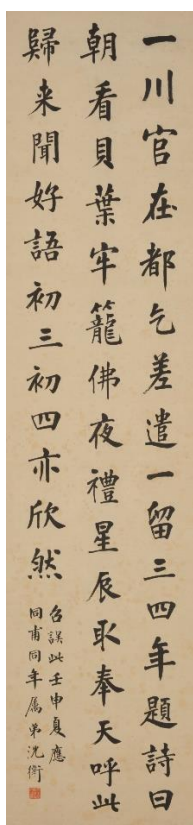 一川官在都乞差遣一留三四年題詩曰
朝看貝葉牢籠佛夜禮星辰取奉天呼此
歸来聞好語初三初四亦欣然
召誤此壬申夏應
同甫同年属弟沈衛